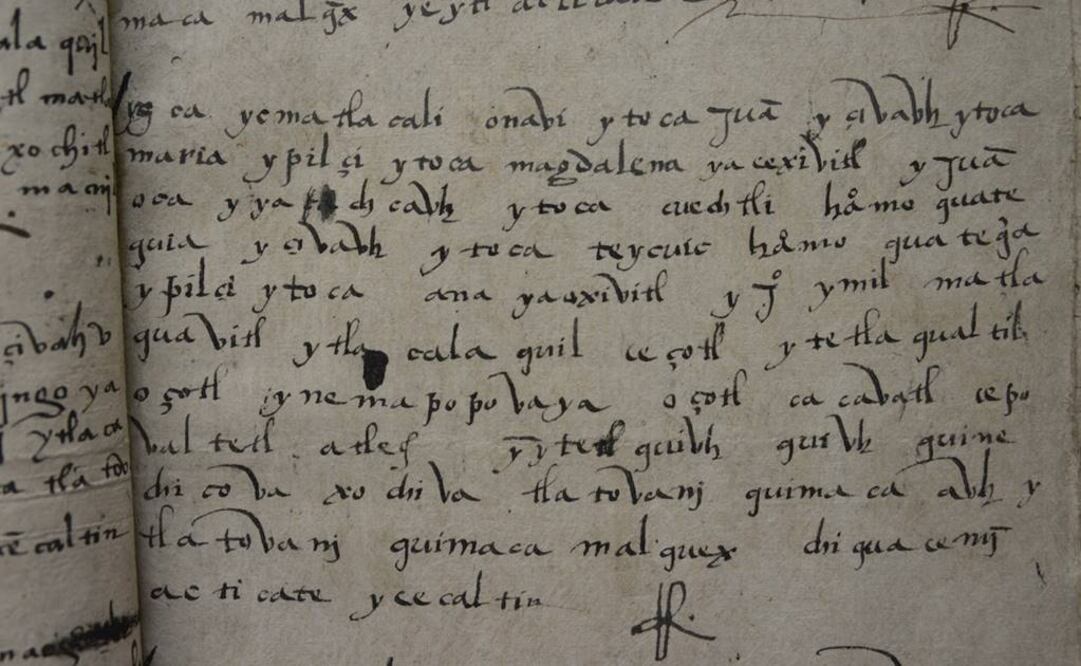 maca malq̄x yeytl
yz ca yematlacali onavi ytoca Juā y çivavh ytoca
maria ypilçi ytoca magdalena ya cexivitl y Juā
oca yya ch cavh ytoca cuechtli håmo quate
quia yçivavh ytoca teycuic håmo quateq̊a
ypilçi ytoca ana ya oxivitl y J̊ ymil matla
quavitl ytla cala quil ce çotl ytetla qualtil
oçotl ynemapopovaya oçotl cacavatl cepo
val tetl atle ȳytetl quivh quivh quine
chicova xochiva tlatovanj quimaca avh y
tlatovanj quimaca malquex chiquacenmj̄
acticate ycecaltin
ala quil
tl matla
xochitl
macnj
çivah v
jngo ya
ytlaca
a tlatov
cē caltin